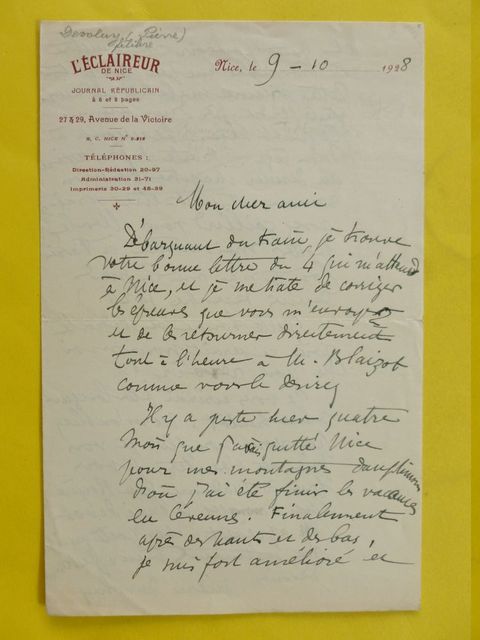 Devoluy (Pierre)
félibre
L'ÉCLAIREUR
DE NICE
JOURNAL RÉPUBLICAIN
à 6 et 8 pages
27 & 29, Avenue de la Victoire
R. C. NICE N°
TÉLÉPHONES :
Direction-Rédaction 20-97
Administration 31-71
Imprimerie 30-29 et 48-39
Nice, le 9 - 10 1928
Mon cher ami
Débarquant du train, je trouve
votre bonne lettre du 4 qui m'attend
à Nice, et je me hâte de corriger
les épreuves que vous m'envoyez
et de les retourner directement
tout à l'heure à M. Blaizot
comme vous le désirez
Il y a juste hier quatre
mois que j'avais quitté Nice
pour mes montagnes dauphinoises
d'où j'ai été finir les vacances
en Cévennes. Finalement
après des hauts et des bas,
je suis fort amélioré et